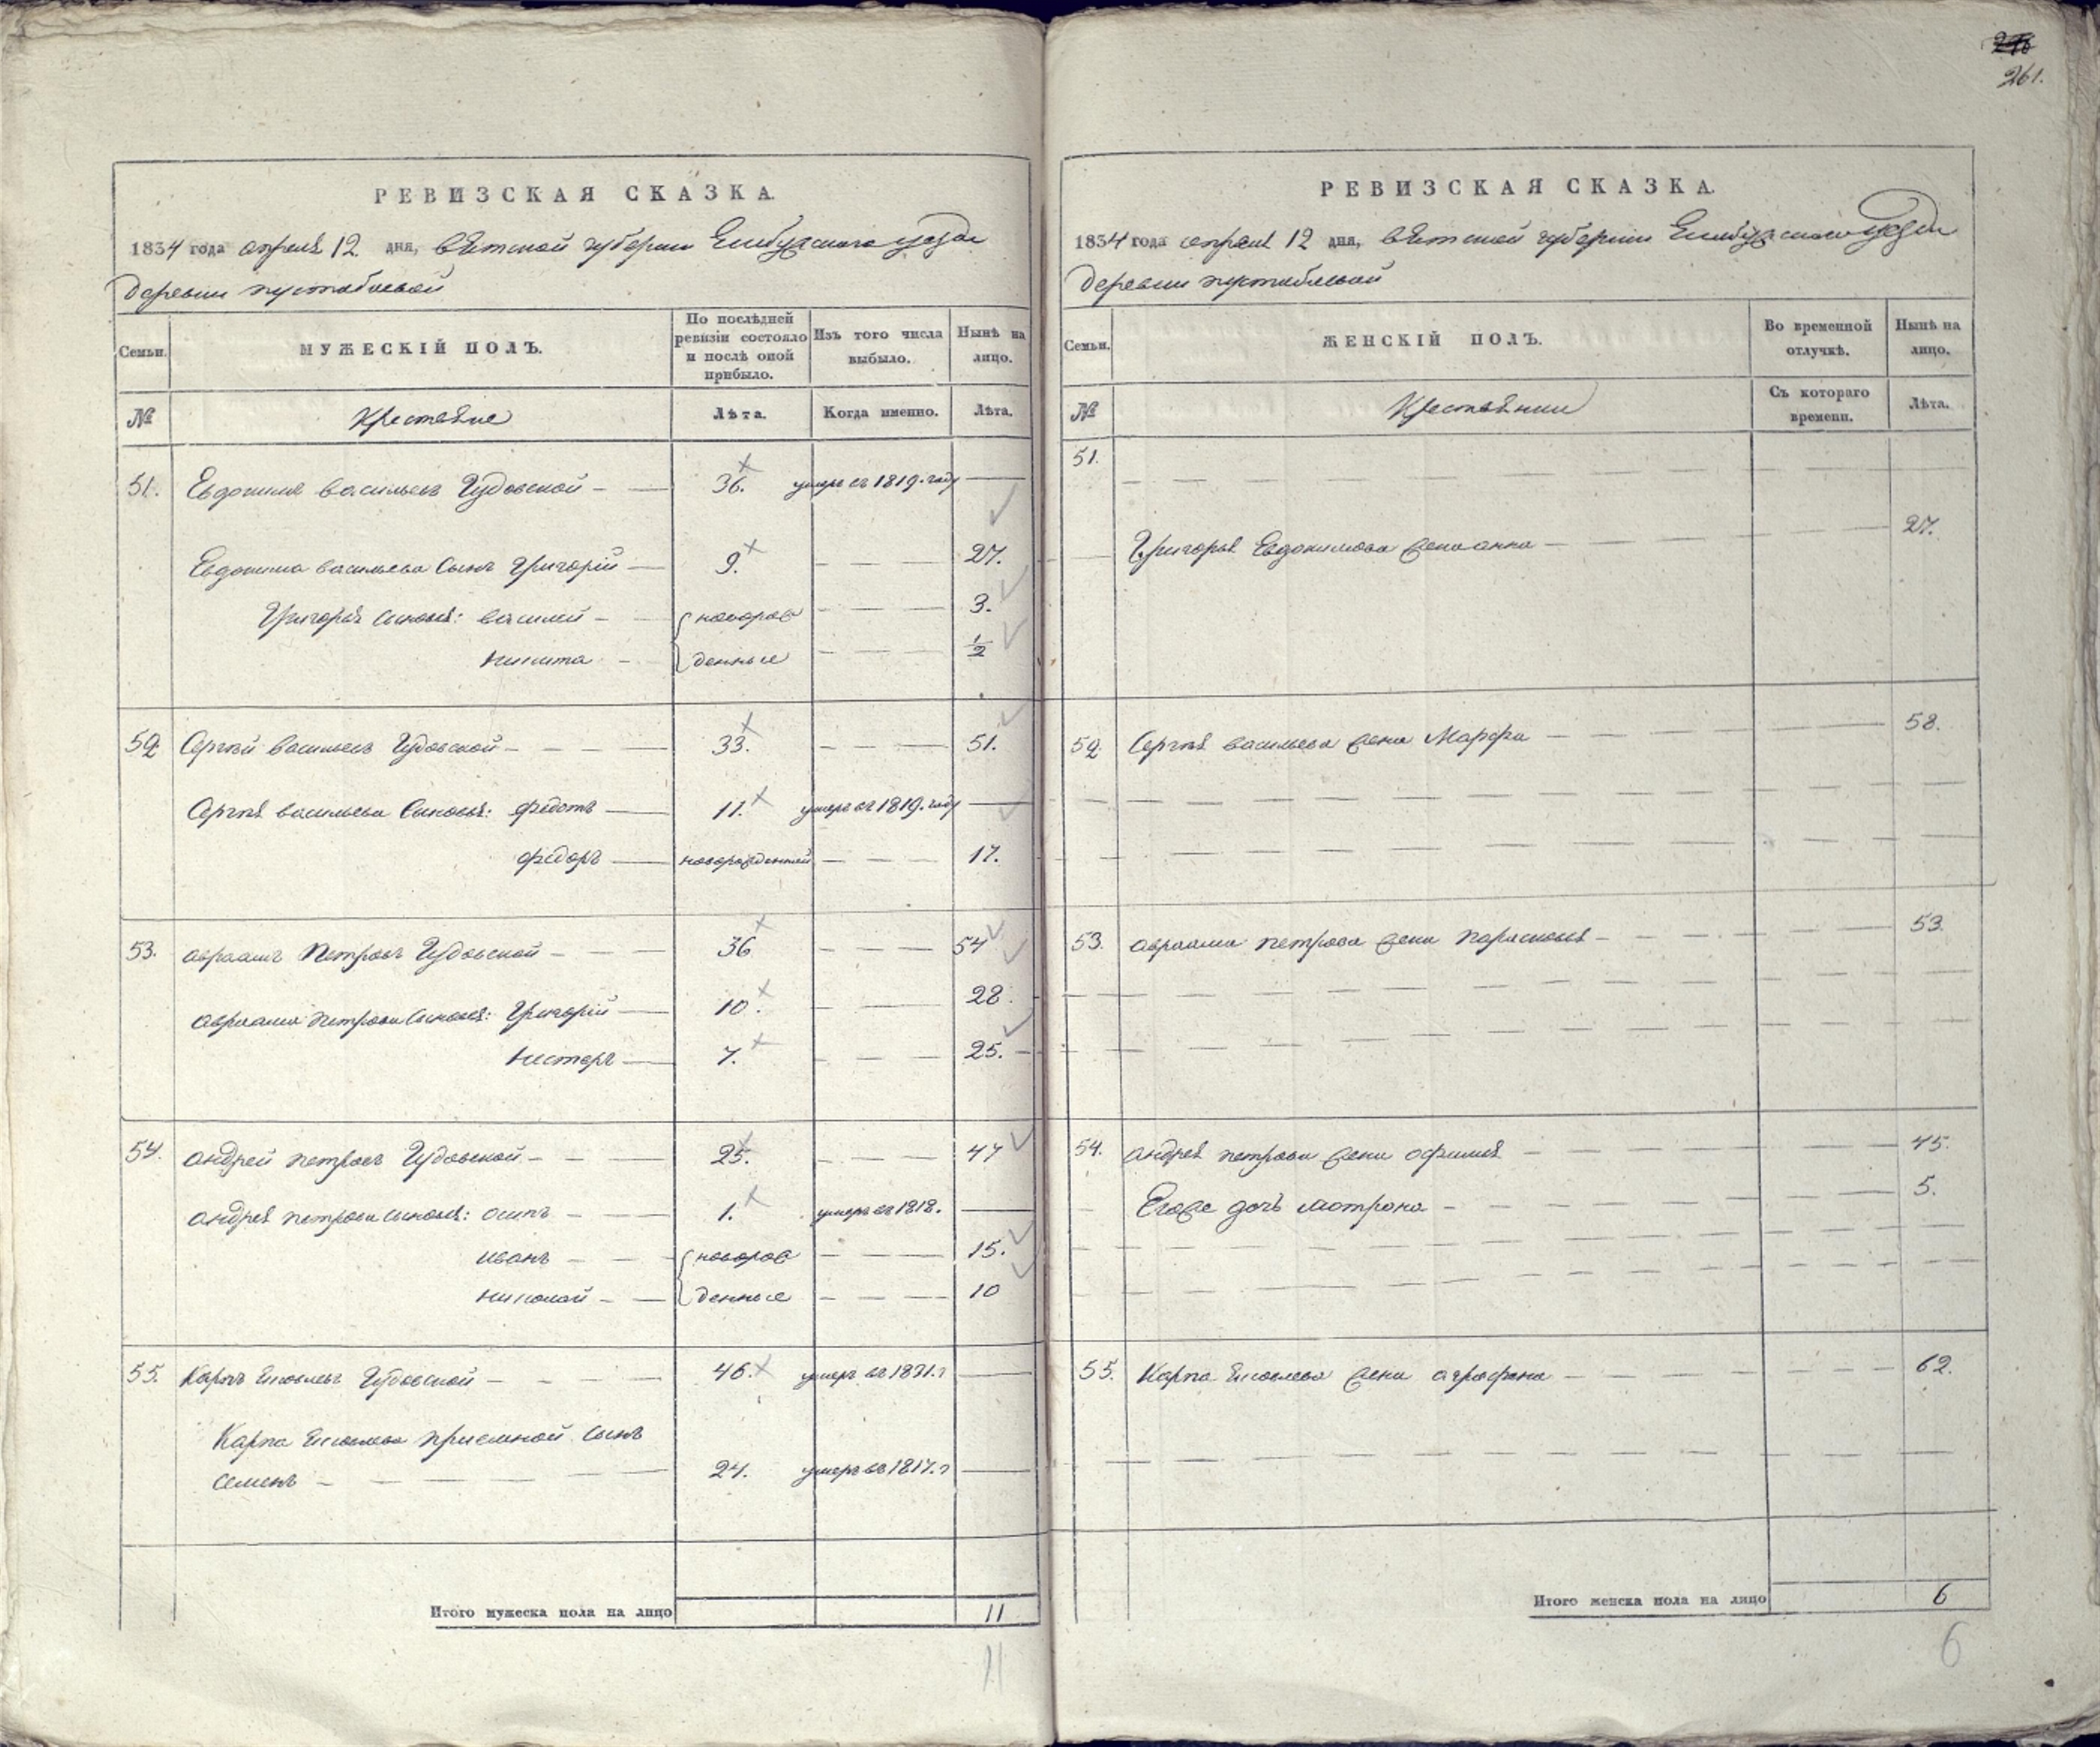 261.
РЕВИЗСКАЯ СКАЗКА.
1834 года апреля 12 дня, вятской губернии Елабугскаго уезда
деревни пустобаевой
Семьи. МУЖЕСКІЙ ПОЛЪ. По послѣдней ревизіи состояло и послѣ оной прибыло. Изъ того числа выбыло. Нынѣ на лицо.
№ Крестьяне Лѣта. Когда именно. Лѣта.
51. Евдокимъ васильевъ Чудовской 36. умеръ въ 1819. году
Евдокима васильева Сынъ Григорій 9. 27.
Григорья сыновья: василий новорож 3.
никита денные 1/2
52. Сергѣй васильевъ Чудовской 33. 51.
Сергѣя васильева Сыновья: федотъ 11. умеръ въ 1819. году
федоръ новорожденный 17.
53. авраамъ Петровъ Чудовской 36 54
авраама петрова сыновья: Григорій 10. 28.
нестеръ 7. 25.
54. андрей петровъ Чудовской 25. 47
андрея петрова сыновья: осипъ 1. умеръ въ 1818.
иванъ новорож 15.
николай денные 10
55. Карпъ яковлевъ Чудовской 46. умеръ въ 1831. г
Карпа яковлева приемной сынъ
семенъ 24. умеръ въ 1817. г
Итого мужеска пола на лицо 11
11
РЕВИЗСКАЯ СКАЗКА.
1834 года апреля 12 дня, вятской губернии Елабугскаго уезда
деревни пустобаевой
Семьи. ЖЕНСКІЙ ПОЛЪ. Во временной отлучкѣ. Нынѣ на лицо.
№ Крестьянки Съ котораго времени. Лѣта.
51.
Григорья Евдокимова жена анна 27.
52. Сергѣя васильева жена Марфа 58.
53. авраама петрова жена парасковья 53.
54. андрея петрова жена офимья 45.
Егоже дочь мотрона 5.
55. Карпа яковлева жена аграфена 62.
Итого женска пола на лицо 6
6